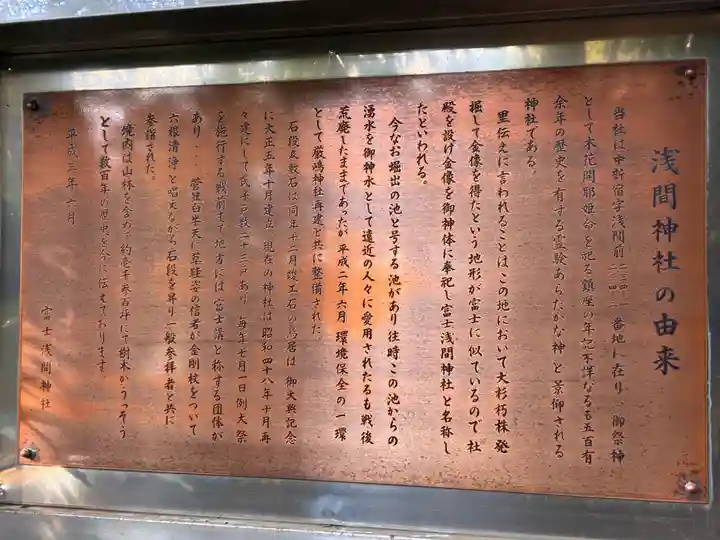 浅間神社の由来
当社は中新宿字浅間前二三四ノ一番地に在り、御祭神
として木花開耶姫命を祀る鎮座の年記不詳なるも五百有
余年の歴史を有する霊験あらたかな神と景仰される
神社である。
里伝えに言われることはこの地において大杉朽株発
掘して金像を得たという地形が富士に似ているので社
殿を設け金像を御神体に奉祀し富士浅間神社と名称し
たといわれる。
今なお堀出の池と号する池があり往時この池からの
湧水を御神水として遠近の人々に愛用されたるも戦後
荒廃したままであったが平成二年六月環境保全の一環
として厳嶋神社再建と共に整備された。
石段及敷石は同年十二月竣工石の鳥居は御大典記念
に大正五年十月建立、現在の神社は昭和四十八年十月再
々建にして氏子戸数二十三戸あり、毎年七月一日例大祭
を施行する戦前まで地方には富士講と称する団体が
あり・・・菅笠白半天に草鞋姿の信者が金剛杖をついて
六根清浄と唱えながら石段を昇り一般参拝者と共に
参詣された。
境内は山林を含めて約壱千参百坪にて樹木がうっそう
として数百年の歴史を今に伝えております。
平成三年六月
富士浅間神社